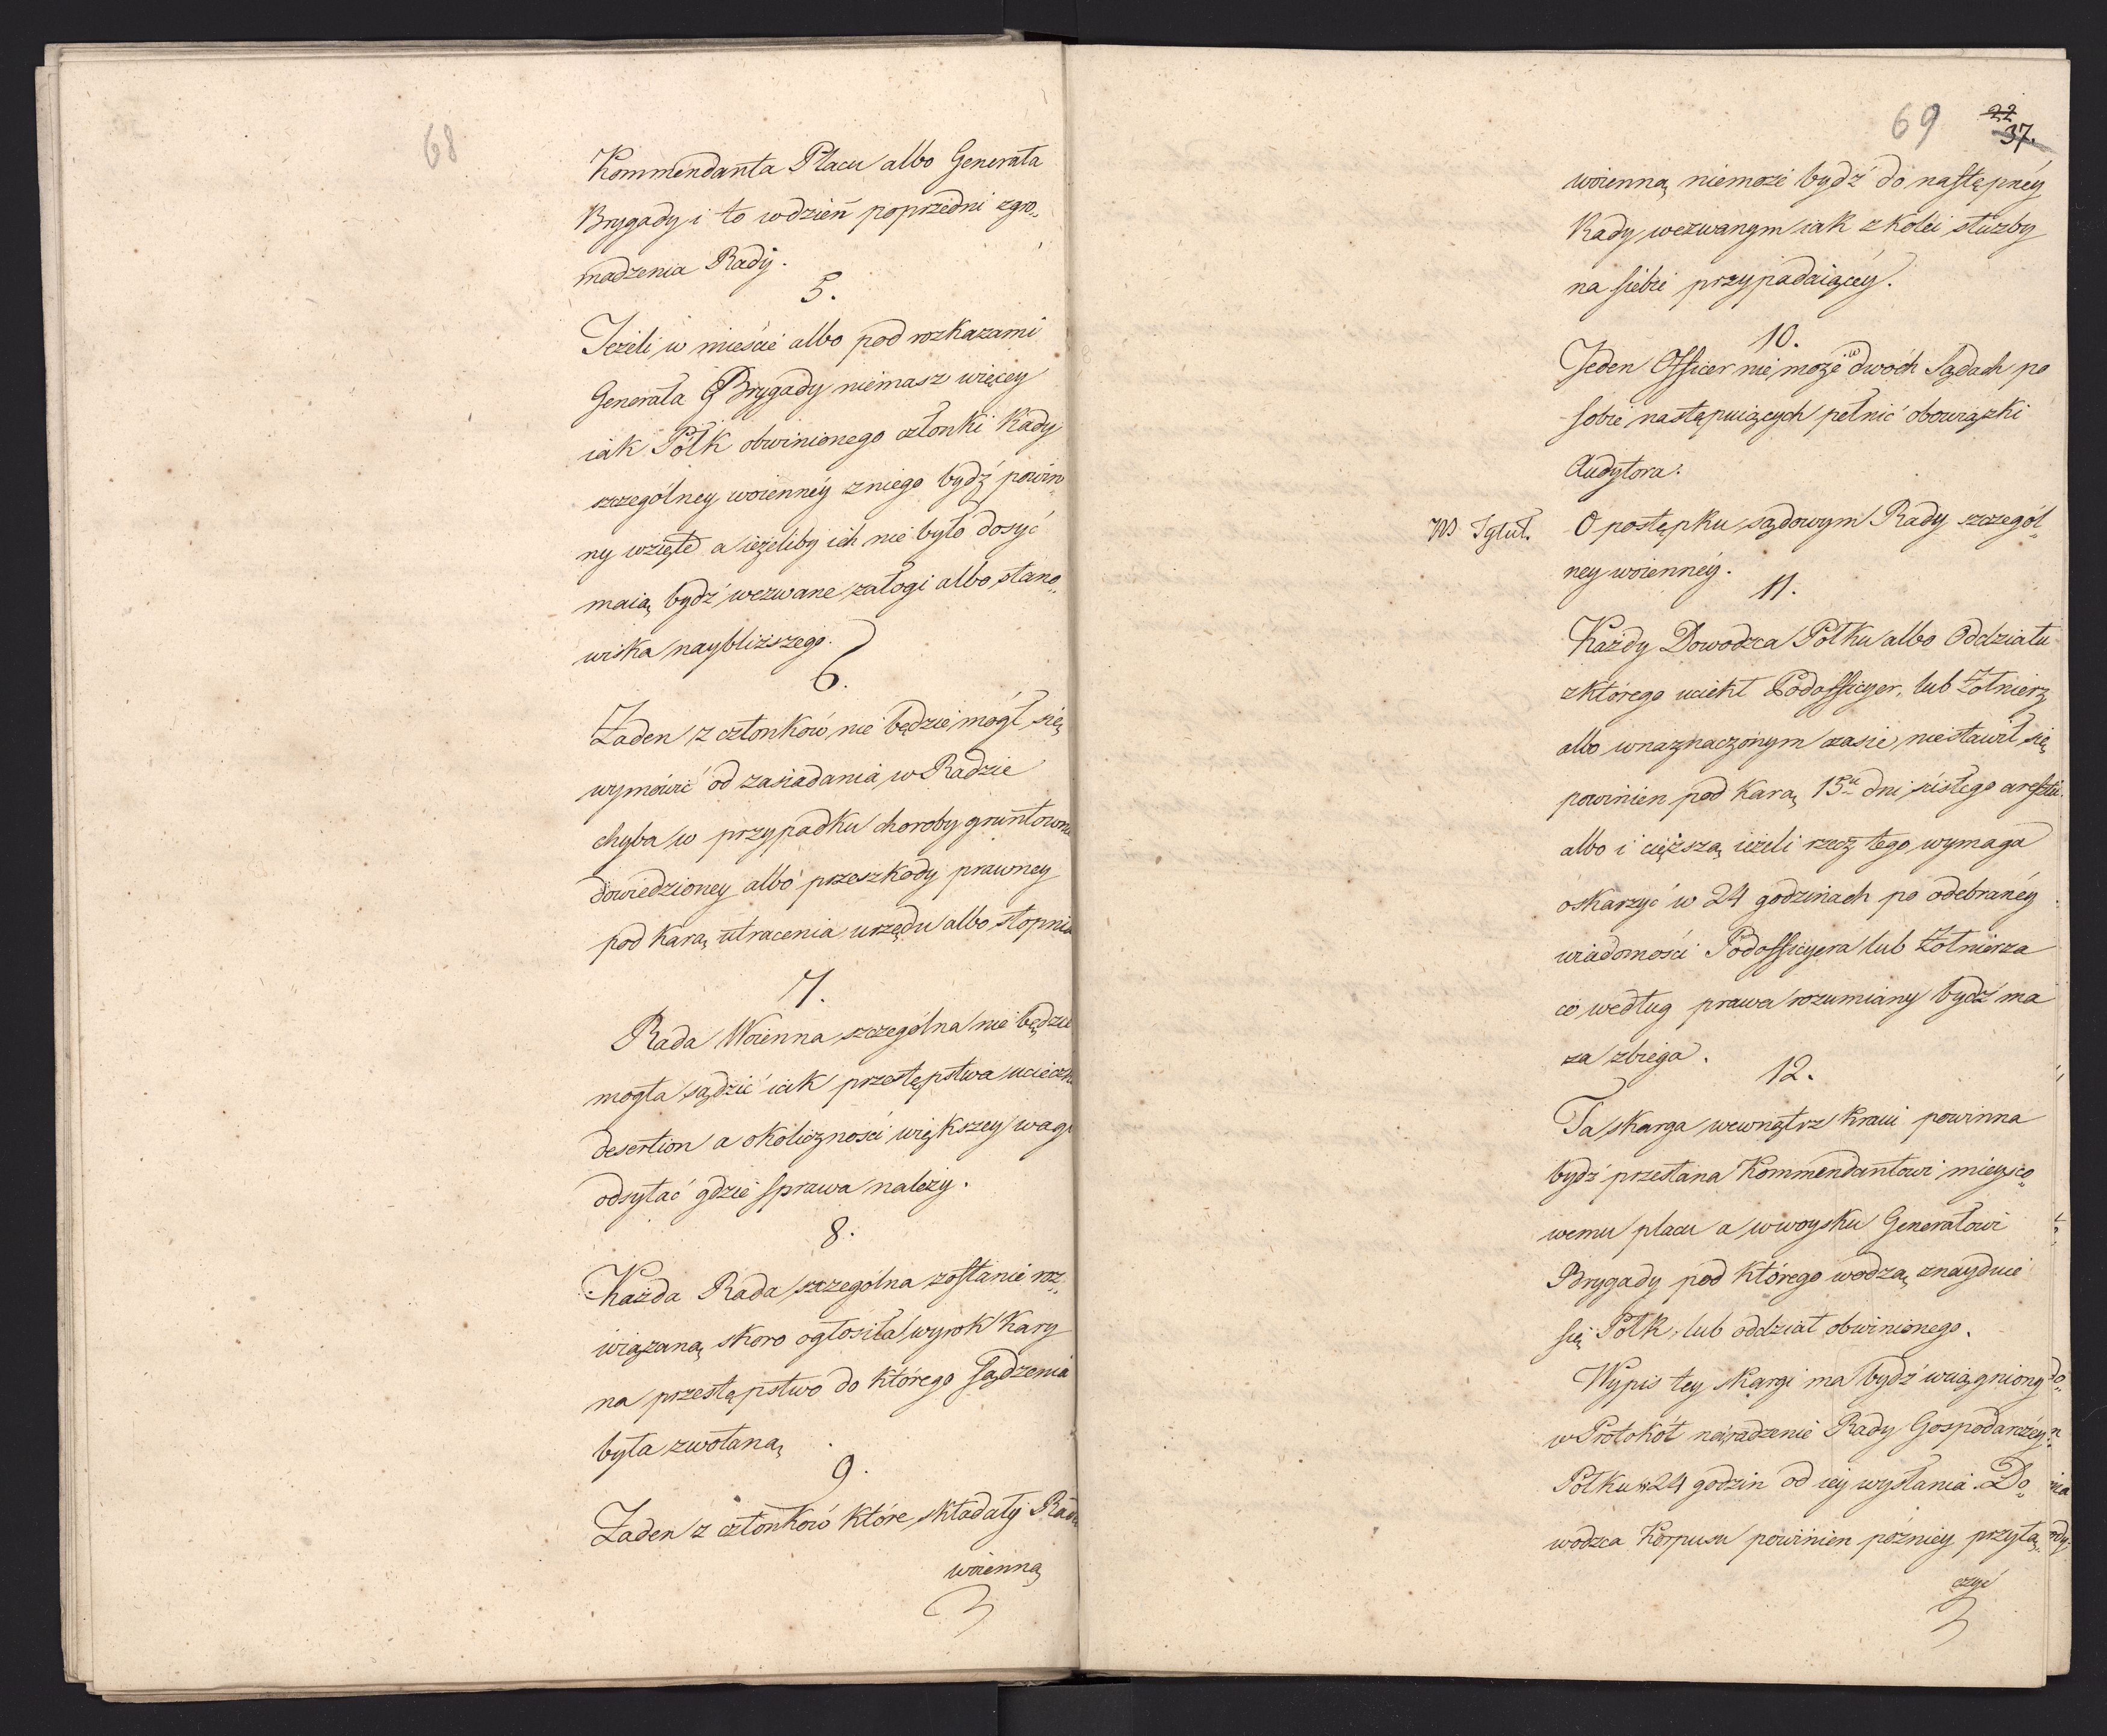 68
Kommendanta Placu albo Generała
Brygady i to wdzień poprzedni zgro„
madzenia Rady.
5.
Jeżeli w mieście albo pod rozkazami
Generała Brygady niemasz więcey
iak Półk obwinionego członki Rady
szczególney woienney zniego bydź powin„
ny wzięte a ieżeliby ich nie było dosyć
maią bydź wezwane załogi albo stano„
wiska naybliższego.
6.
Żaden z członków nie będzie mógł się
wymówić od zasiadania w Radzie
chyba w przypadku choroby gruntowne
dowiedzioney albo przeszkody prawney
pod karą utracenia urzędu albo stopnia
7.
Rada Woienna szczególna nie będzie
mogła sądzić iak przestępstwa ucieczk
desertion a okoliczności większey wagi
odsyłać gdzie sprawa należy.
8.
Każda Rada szczególna zostanie roz„
wiązaną skoro ogłosiła wyrok kary
na przestępstwo do którego sądzenia
była zwołaną
9.
Żaden z członków które składały Radę
woienną
69 22
37.
woienną niemoże bydź do następnéy
Rady wezwanym iak z kolei służby
na siebie przypadaiącéy.
10.
Jeden Officer nie może w dwóch Sądach po
sobie następuiących pełnić obowiązki
Audytora.
VII Tytuł. O postępku sądowym Rady szczegól„
ney woiennéy.
11.
Każdy Dowodzca Półku albo Oddziału
zktórego uciekł Podofficyer, lub Żołnierz
albo wnaznaczonym czasie niestawił się
powinien pod karą 15u dni ścisłego aresztu
albo i cięższą ieżeli rzecz tego wymaga
oskarzyć w 24 godzinach po odebranéy
wiadomości Podofficyera lub Żołnierza
co według prawa rozumiany bydź ma
za zbiega.
12.
Ta skarga wewnątrz kraiu powinna
bydź przesłana Kommendantowi mieysco„
wemu placu a wwoysku Generałowi
Brygady pod którego wodzą znayduie
się Półk, lub oddział obwinionego.
Wypis tey skargi ma bydź wciągniony
w Protokół naradzenie Rady Gospodarczéy
Półku w 24 godzin od iey wysłania. Do„
wodzca Korpusu powinien pózniey przyłą„
czyć